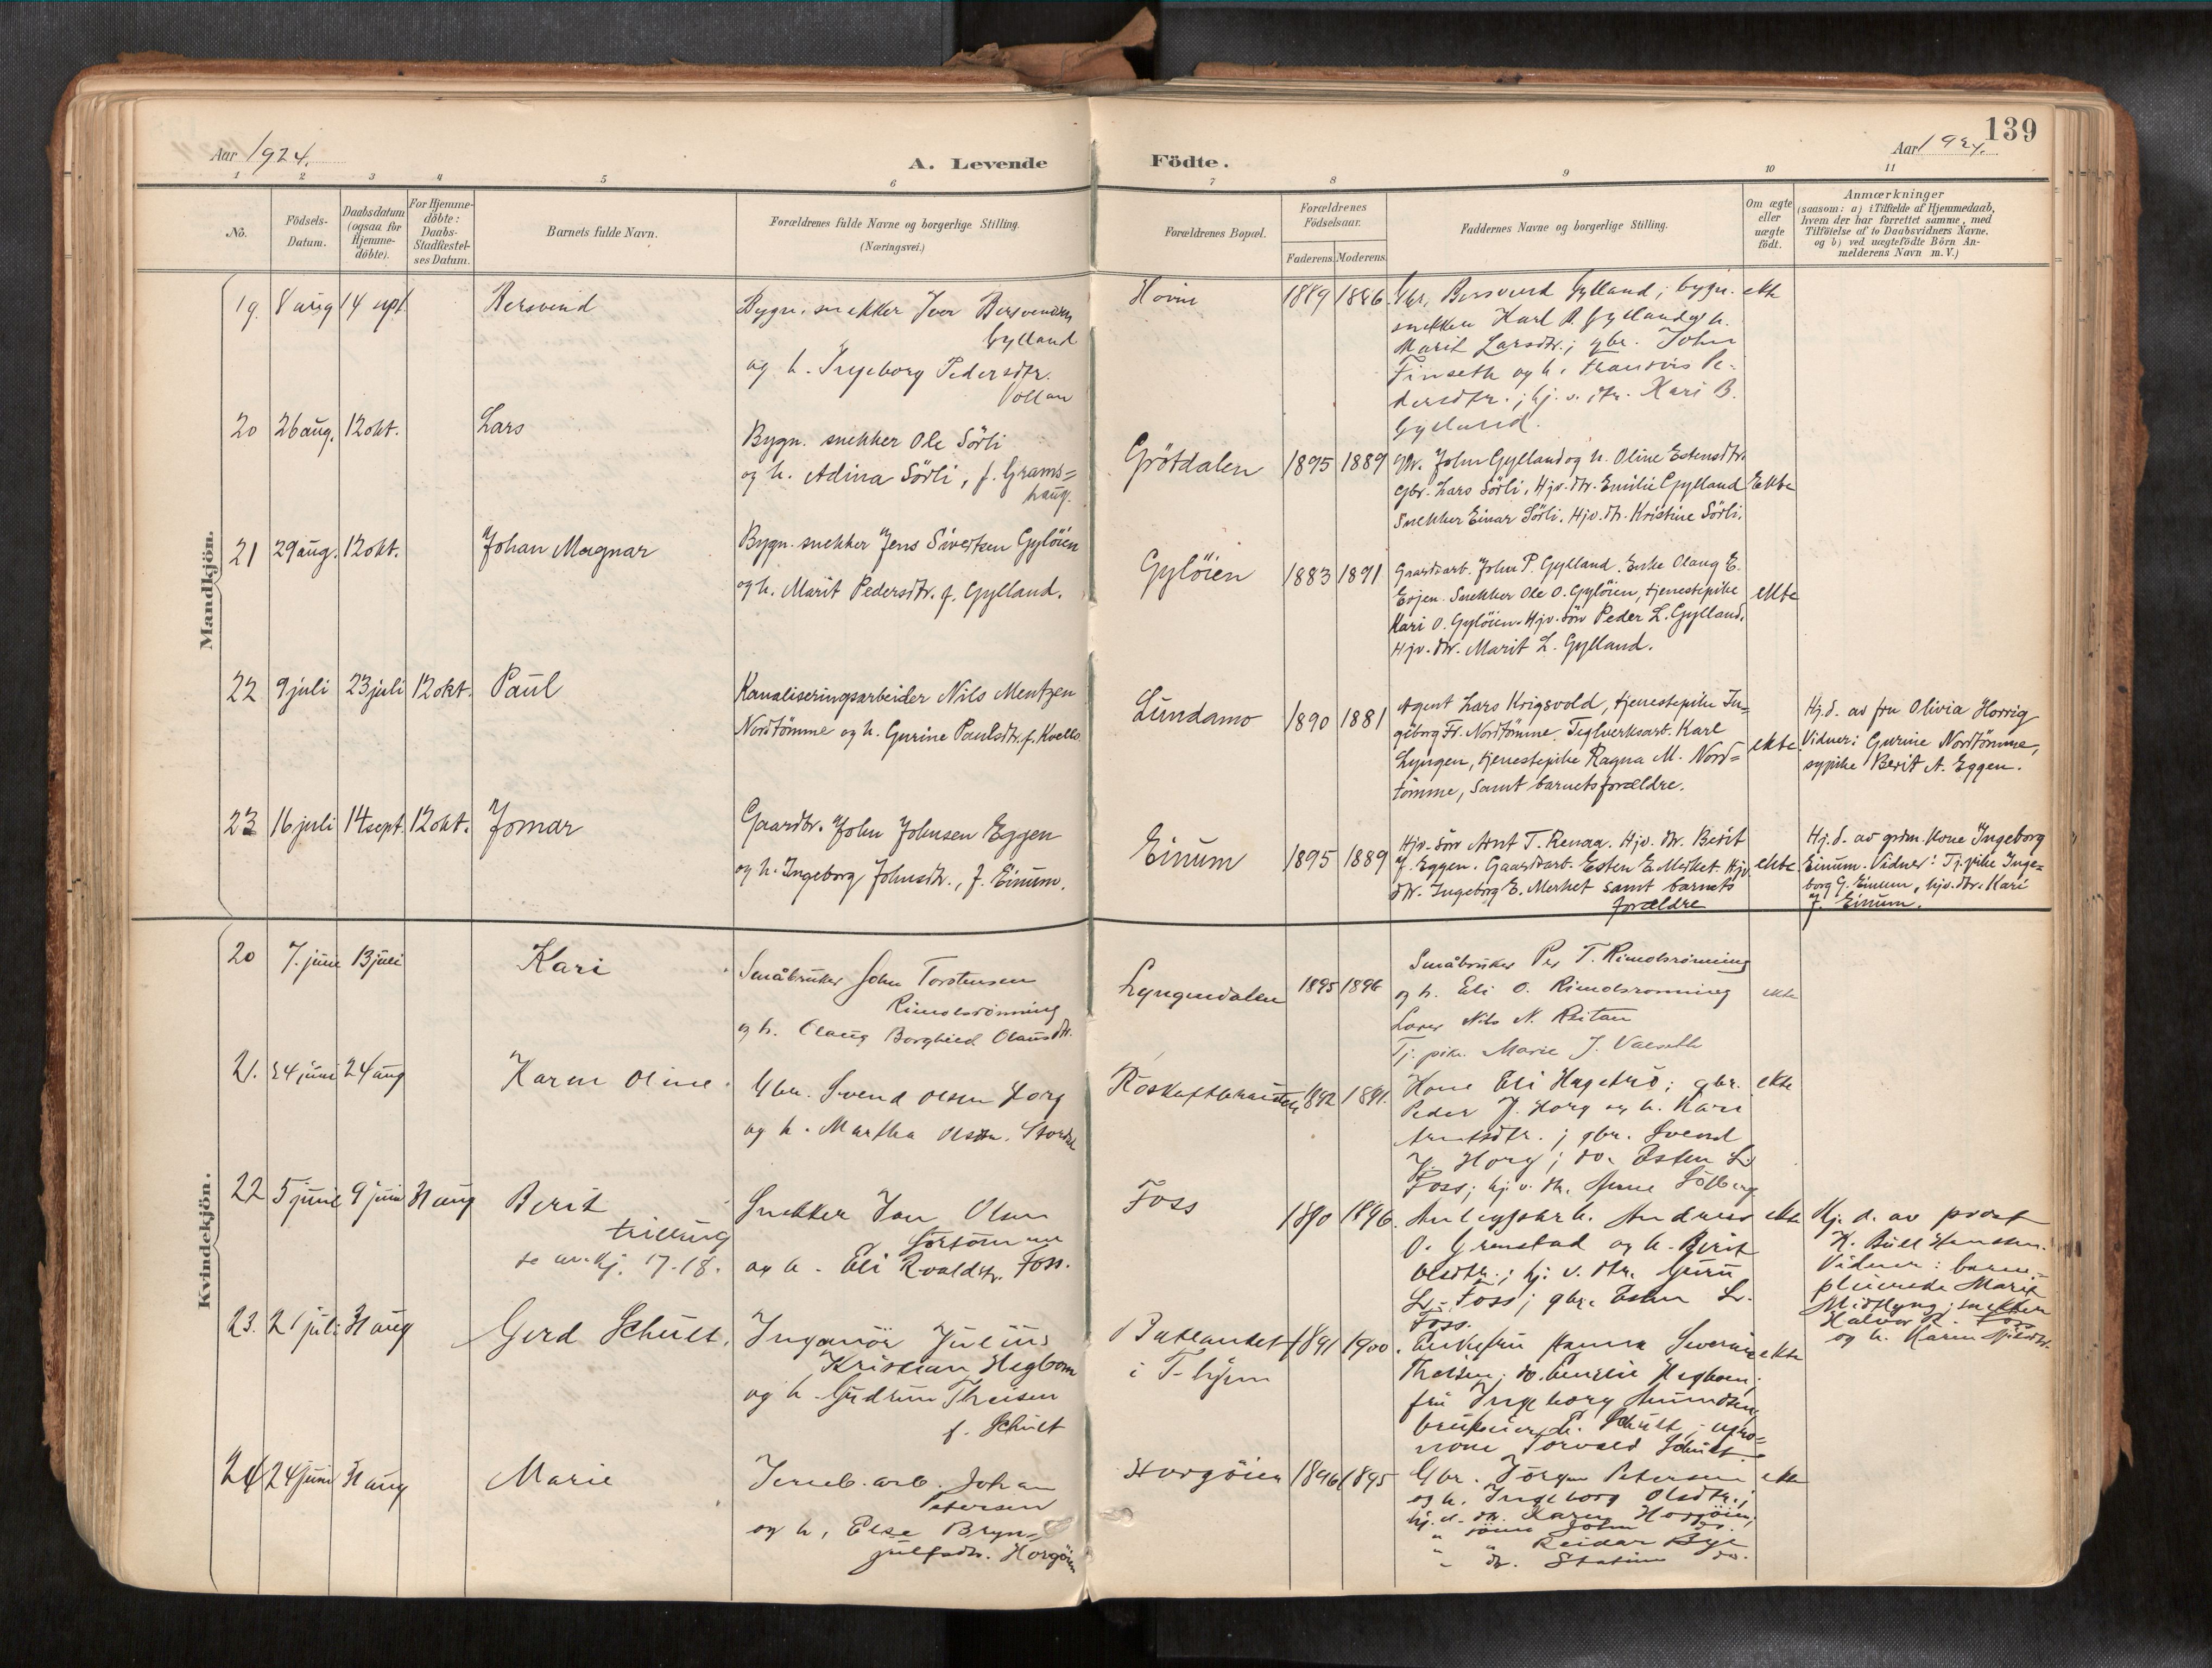 Aar 1924.
A. Levende
Födte.
Aar 1924.
139
1 2 3 4 5 6 7 8 9 10 11
No.
Födsels-
Datum.
Daabsdatum
(ogsaa for
Hjemme-
döbte).
For Hjemme-
döbte:
Daabs-
Stadfæstel-
ses Datum.
Barnets fulde Navn.
Forældrenes fulde Navne og borgerlige Stilling.
(Næringsvei.)
Forældrenes Bopæl.
Forældrenes
Födselsaar.
Faderens. Moderens.
Faddernes Navne og borgerlige Stilling.
Om ægte
eller
uægte
födt.
Anmærkninger
(saasom: a) i Tilfælde af Hjemmedaab,
hvem der har forrettet samme, med
Tilföielse af to Daabsvidners Navne.
og b) ved uægtefödte Börn An-
melderens Navn m.V.)
Mandkjön.
19. 8 aug 14 sept. Bersvend
Bygn. snekker Iver Bersvendsen
Gylland
og h. Ingeborg Pedersdtr.
Vollan
Hovin 1889 1886
Gbr. Bersvend Gylland; bygn.
snekker Karl B. Gylland og h.
Marit Larsdtr.; gbr. John
Finseth og h. Pe-
dersdtr.; hj. v. dtr. Kari B.
Gylland.
ekte
20 26 aug. 12 okt. Lars
Bygn. snekker Ole Sörli
og h. Adina Sörli, f. Grams-
haug.
Grötdalen 1895 1889
Gbr. John Gylland og h. Oline Estensdtr.
Gbr. Lars Sörli. Hjv. dtr. Emilie Gylland
Snekker Einar Sörli. Hjv. dtr. Kristine Sörli.
Ekte
21 29 aug. 12 okt. Johan Magnar
Bygn. snekker Jens Sivertsen Gylöien
og h. Marit Pedersdtr. f. Gylland.
Gylöien 1883 1891
Gaardarb. John P. Gylland. Enke Olaug E.
Evjen. Snekker Ole O. Gylöien, tjenestepike
Kari O. Gylöien. Hjv. sön Peder L. Gylland.
Hjv. dtr. Marit L. Gylland.
ekte
22 9 juli 23 juli 12 okt. Paul
Kanaliseringsarbeider Nils Mentzen
Nordtömme og h. Gurine Paulsdtr. f. Kvello
Lundamo 1890 1881
Agent Lars Krigsvold, tjenestepike In-
geborg Fr. Nordtömme. Teglverksarb. Karl
Lyngen, tjenestepike Ragna M. Nord-
tömme, samt barnets forældre.
ekte.
Hj.d. av fru Olivia Horrig
Vidner: Gurine Nordtömme,
sypike Berit A. Eggen.
23 16 juli 14 sept. 12 okt. Jomar
Gaardbr. John Johnsen Eggen
og h. Ingeborg Johnsdtr., f. Einum.
Einum 1895 1889
Hjv. sön Arnt T. Renaa. Hjv. dtr. Berit
J. Eggen. Gaardarb. Esten E. Merket. Hjv.
dtr. Ingeborg E. Merket samt barnets
forældre
ekte.
Hj.d. av grdm. kone Ingeborg
Einum. Vidner: Tj.pike Inge-
borg G. Einum, hjv. dtr. Kari
J. Einum.
Kvindekjön.
20 7. juni 13 juli Kari
Småbruker John Torstensen
Rimolsrönning
og h. Olaug Borghild Olausdtr.
Lyngendalen 1895 1896
Småbruker Per T. Rimolsrönning
og h. Eli O. Rimolsrönning
Nils N. Reitan
Tj. pike. Marie J. Valseth
ekte
21. 24 juni 24 aug Karen Oline.
Gbr. Svend Olsen Horg
og h. Martha Olsdtr.
1892 1891.
Kone Eli Hagetrö; gbr.
Peder J. Horg og h. Kari
Arntsdtr.; gbr. Svend
J. Horg; do. Esten L.
Foss; hj. v. dtr. Anne Solberg
ekte
22 5 juni 9 juni 31 aug Berit
trilling
se m.kj. 17.18.
Snekker Jon Olsen
og h. Eli Roaldstr. Foss.
Foss 1890 1896.
Anleggsarb. Andreas
O. Grenstad og h. Berit
Olsdtr.; hj. v. dtr. Guru
L. Foss; gbr. Esten L.
Foss.
ekte
Hj. d. av prost
K. Bull Hanssen.
Vidner: barne-
pleierske Marit
Midtlyng; snekker
Halvor R. Foss
og h. Karen
23. 21 juli 31 aug Gerd Schult.
Ingeniör Julius
Kristian Hegbom
og h. Gudrun Theisen
f. Schult
Baklandet
i T-hjem 1891 1900.
Enkefru Hanna Severine
Theisen; do. Hegbom;
fru Ingeborg Amundsen,
Schult; agro-
nom Torvald Schult.
ekte
24 24 juni 31 aug Marie
Jernb. arb. Johan
Petersen
og h. Else Bryn-
julfsdtr. Horgöien
Horgöien 1896 1895
Gbr. Jörgen Petersen
og h. Ingeborg Olsdtr.;
hj. v. dtr. Karen Horgöien;
" söner John do.
" " Reidar Bye
" dr. do.
ekte